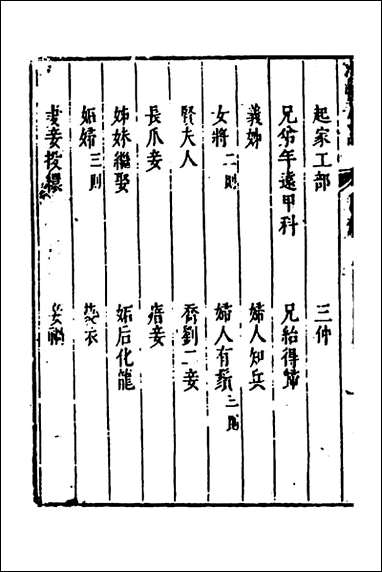 起家工部　三仲
兄弟年遠甲科　兄紿得節
義姊　婦人知兵
女將二則　婦人有鬚三則
賢夫人　喬劉二妾
長爪妾　瘖妾
姊妹繼娶　妬后化龍
妬婦三則　衣
妻妾投繯　妾